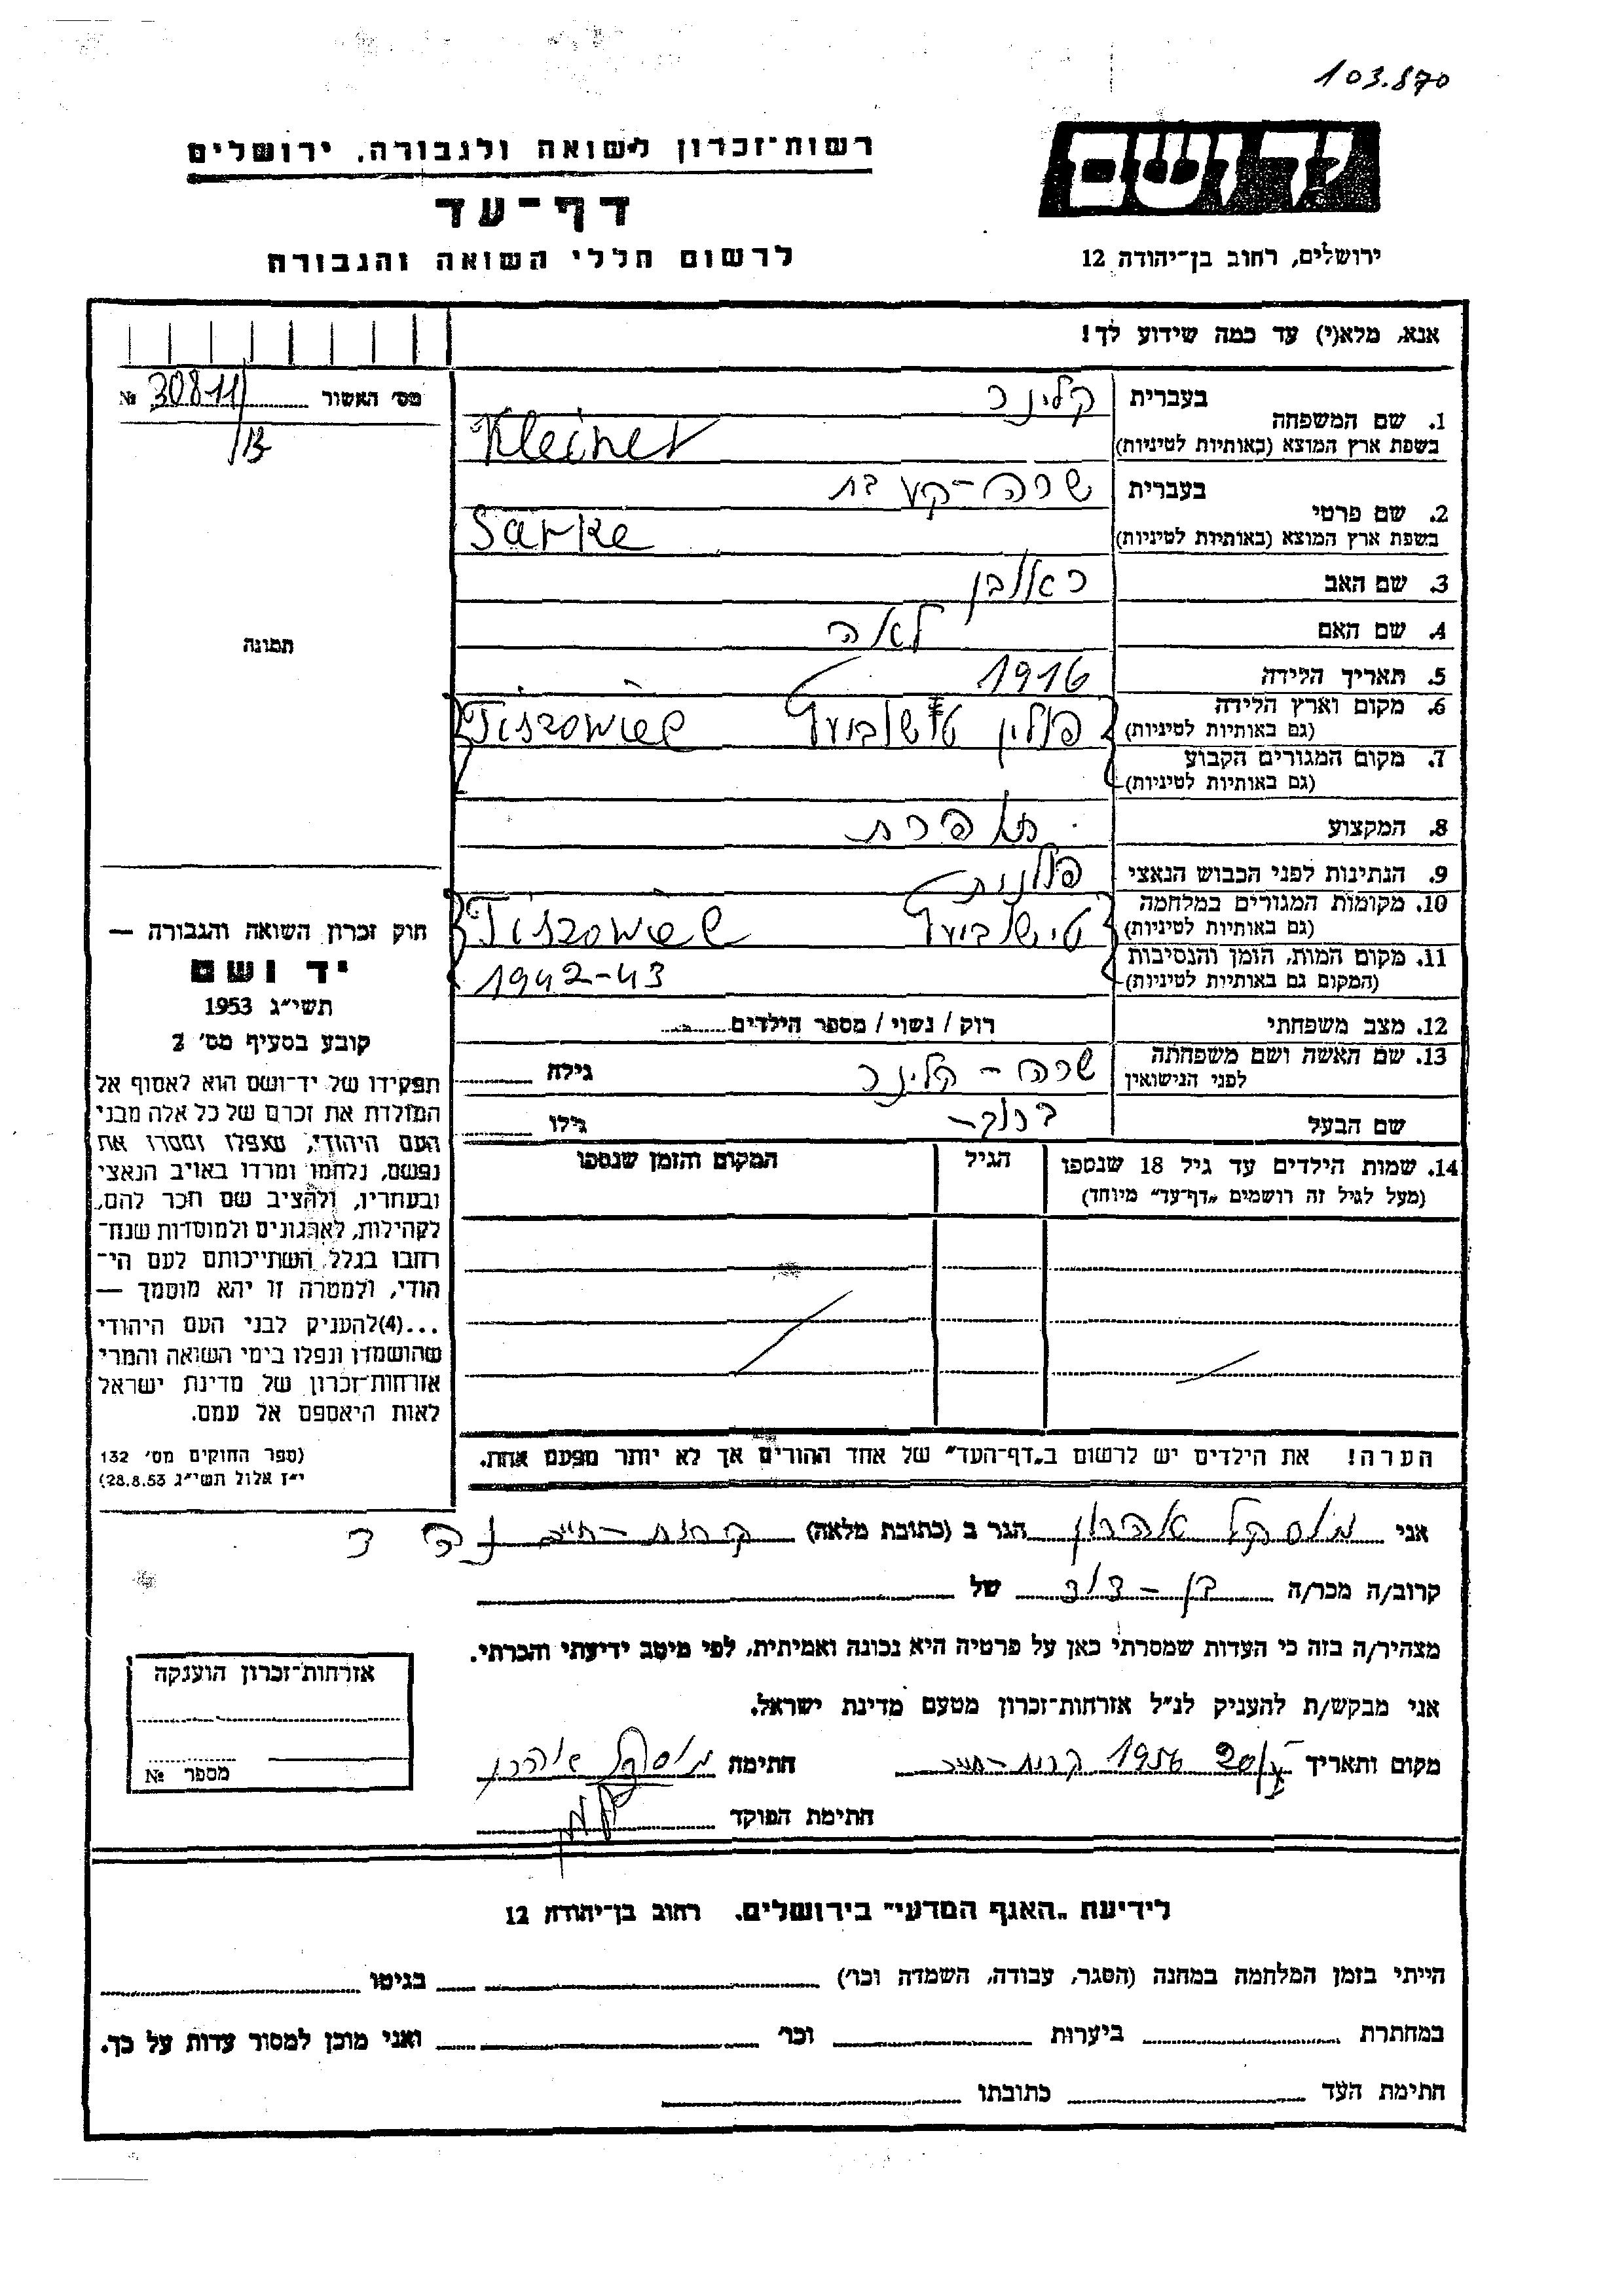 103.870
יד ושם
רשות־זכרון לשואה ולגבורה. ירושלים
דף־עד
לרשום חללי השואה והגבורה
ירושלים, רחוב בן־יהודה 12
אנא, מלא(י) עד כמה שידוע לך!
מס׳ האשור № 30811/
1. שם המשפחה
בעברית קלינר
בשפת ארץ המוצא (באותיות לטיניות) Kleiner
2. שם פרטי
בעברית שרה-
בשפת ארץ המוצא (באותיות לטיניות) Sarke
3. שם האב ראובן
4. שם האם לאה
5. תאריך הלידה 1916
6. מקום וארץ הלידה
(גם באותיות לטיניות) פולין
7. מקום המגורים הקבוע
(גם באותיות לטיניות)
8. המקצוע תופרת
9. הנתינות לפני הכבוש הנאצי פולנית
10. מקומות המגורים במלחמה
(גם באותיות לטיניות)
11. מקום המות, הזמן והנסיבות
(המקום גם באותיות לטיניות) 1942-43
12. מצב משפחתי רוק / נשוי / מספר הילדים
13. שם האשה ושם משפחתה
לפני הנישואין שרה - קלינר גילה
שם הבעל ברוך- גילו
14. שמות הילדים עד גיל 18 שנספו
(מעל לגיל זה רושמים „דף־עד״ מיוחד)
הגיל
המקום והזמן שנספו
הערה! את הילדים יש לרשום ב„דף־העד״ של אחד ההורים אך לא יותר מפעם אחת.
תמונה
חוק זכרון השואה והגבורה —
יד ושם
תשי״ג 1953
קובע בסעיף מס׳ 2
תפקידו של יד־ושם הוא לאסוף אל
המולדת את זכרם של כל אלה מבני
העם היהודי, שנפלו ומסרו את
נפשם, נלחמו ומרדו באויב הנאצי
ובעוזריו, ולהציב שם וזכר להם,
לקהילות, לארגונים ולמוסדות שנח־
רבו בגלל השתייכותם לעם הי־
הודי, ולמטרה זו יהא מוסמך —
...(4)להעניק לבני העם היהודי
שהושמדו ונפלו בימי השואה והמרי
אזרחות־זכרון של מדינת ישראל
לאות היאספם אל עמם.
(ספר החוקים מס׳ 132
י״ז אלול תשי״ג 28.8.53)
אני מוסקל אהרון הגר ב (כתובת מלאה) קרית-חיים
קרוב/ה מכר/ה בן-דוד של
מצהיר/ה בזה כי העדות שמסרתי כאן על פרטיה היא נכונה ואמיתית, לפי מיטב ידיעתי והכרתי.
אני מבקש/ת להעניק לנ״ל אזרחות־זכרון מטעם מדינת ישראל.
מקום ותאריך קרית-חיים 1956 חתימה מוסקל אהרון
חתימת הפוקד
אזרחות־זכרון הוענקה
מספר №
לידיעת „האגף המדעי״ בירושלים. רחוב בן־יהודה 12
הייתי בזמן המלחמה במחנה (הסגר, עבודה, השמדה וכו׳) בגיטו
במחתרת ביערות וכו׳ ואני מוכן למסור עדות על כך.
חתימת העד כתובתו